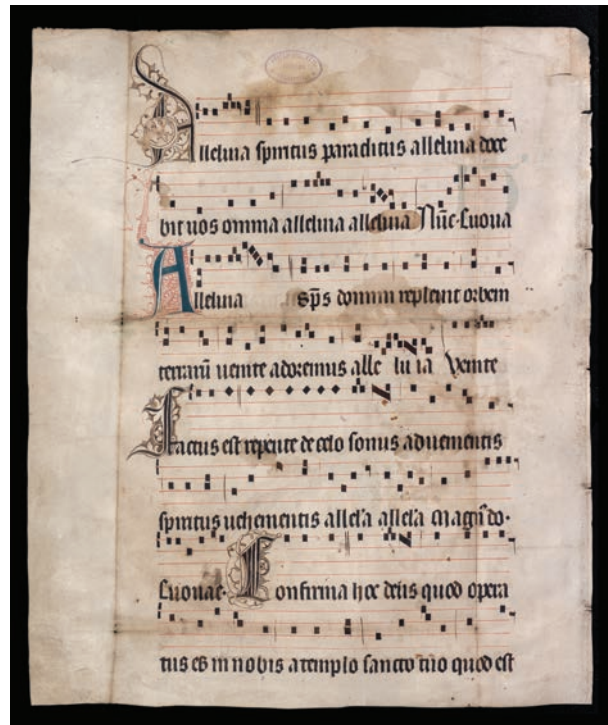 Alleluia spiritus paraclitus alleluia doce
bit uos omnia alleluia alleluia Nūc. Euoua
Alleluia sp̄s domini repleuit orbem
terrarū uenite adoremus alle lu ia Venite
Factus est repente de celo sonus aduenientis
spiritus uehementis all'a all'a Magn̄ do.
Euouae. Confirma hoc deus quod opera
tus es in nobis a templo sancto tuo quod est